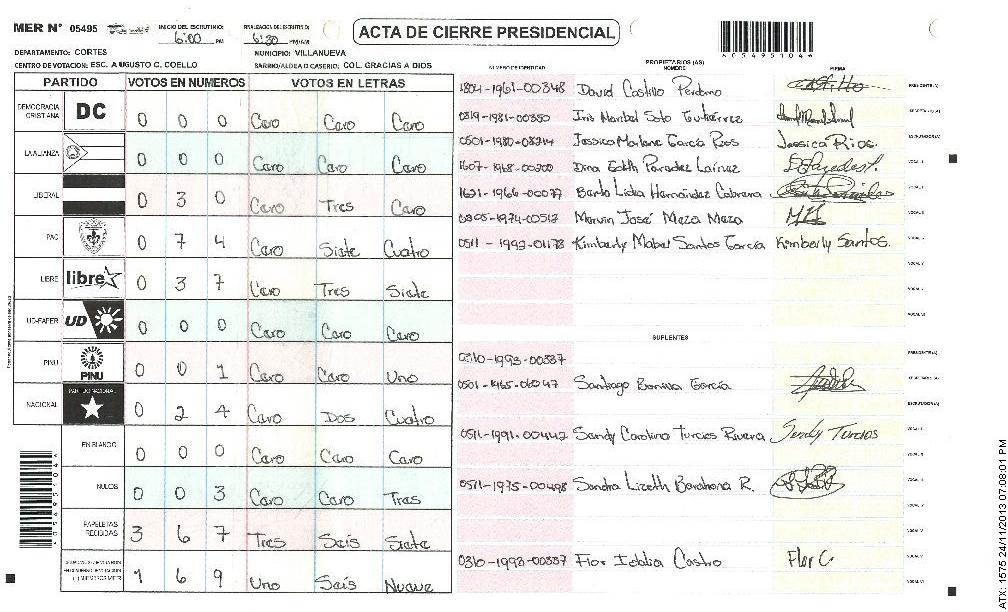 MER N° 05495 INICIO DEL ESCRUTINIO 6:00 PM FINALIZACION DEL ESCRUTINIO: 6:30 PM/AM ACTA DE CIERRE PRESIDENCIAL
DEPARTAMENTO: CORTES MUNICIPIO: VILLANUEVA
CENTRO DE VOTACION: ESC. AUGUSTO C. COELLO BARRIO/ALDEA O CASERIO: COL. GRACIAS A DIOS
PARTIDO VOTOS EN NUMEROS VOTOS EN LETRAS
DEMOCRACIA CRISTIANA DC 0 0 0 Cero Cero Cero
LA ALIANZA 0 0 0 Cero Cero Cero
LIBERAL 0 3 0 Cero Tres Cero
PAC 0 7 4 Cero Siete Cuatro
LIBRE libre 0 3 7 Cero Tres Siete
UD-FAPER UD 0 0 0 Cero Cero Cero
PINU PINU 0 0 1 Cero Cero Uno
NACIONAL PARTIDO NACIONAL 0 2 4 Cero Dos Cuatro
EN BLANCO 0 0 0 Cero Cero Cero
NULOS 0 0 3 Cero Cero Tres
PAPELETAS RECIBIDAS 3 6 7 Tres Seis Siete
1 6 9 Uno Seis Nueve
NUMERO DE IDENTIDAD PROPIETARIOS (AS) NOMBRE FIRMA
1804-1961-00348 David Castillo Perdomo PRESIDENTE(A)
0319-1981-00350 Iris Maribel Soto Gutierrez SECRETARIO(A)
0501-1980-08314 Jessica Marlene Garcia Rios Jessica Rios. ESCRUTADOR(A)
1607-1968-00300 Dina Edith Paredez Lainez VOCAL I
1621-1966-00077 Berta Lidia Hernández Cabrera VOCAL II
0805-1974-00517 Marvin José Meza Meza VOCAL III
0511-1993-01178 Kimberly Mabel Santos García Kimberly Santos. VOCAL IV
VOCAL V
VOCAL VI
SUPLENTES
0310-1993-00337 PRESIDENTE(A)
0501-1965-06047 Santiago Bonilla García SECRETARIO(A)
ESCRUTADOR(A)
0511-1991-00442 Sandy Carolina Turcios Rivera Sendy Turcios
0511-1975-00498 Sandra Lizeth Barahona R.
0310-1993-00337 Flor Idalia Castro Flor C
05495104
ATX: 1575 24/11/2013 07:08:01 PM